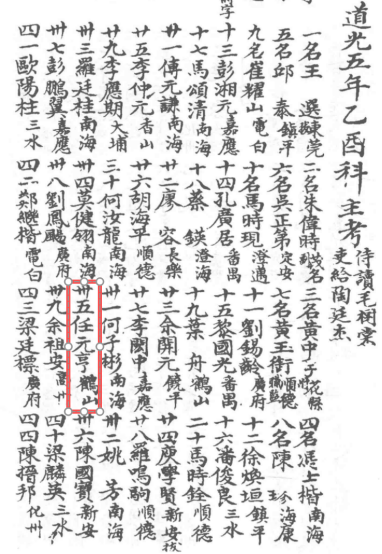 道光五年乙酉科主考 侍讀毛樹棠 吏給陶廷杰
一名王 選東莞 二名朱偉時茂名 三名黃中子花縣 四名馮上楷南海
五名邱 泰鎮平 六名吳正第定安 七名黃玉衡順德 八名陳 珍海康
九名崔耀山電白 十名馬時現澄邁 十一劉錫齡廣府 十二徐煥垣鎮平
十三彭湘元嘉應 十四孔廣居番禺 十五黎國光番禺 十六潘俊良三水
十七馬頌清南海 十八蔡 鍈澄海 十九葉 舟鶴山 二十馬時銓順德
廿一傅元謙南海 廿二康 容長樂 廿三余開元饒平 廿四庾學賢新安拔
廿五李仲元香山 廿六胡海平順德 廿七李閎中嘉應 廿八羅鳴駒順德
廿九李應期大埔 三十何汝龍南海 卅一何子彬南海 卅二姚 芳南海
卅三羅廷桂南海 卅四莫健翎南海 卅五任元亨鶴山 卅六陳國寶新安
卅七彭鵬翼嘉應 卅八劉鳳颺廣府 卅九余祖安高州 四十梁麟英三水
四一歐陽柱三水 四二鄭繼楷電白 四三梁廷標廣府 四四陳搢邦化州